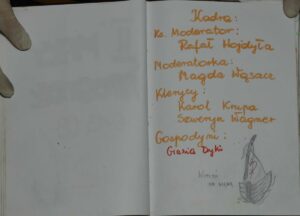 Kadra:
Ks. Moderator:
Rafał Hojdyła
Moderatorka:
Magda Wąsacz
Klerycy:
Karol Krupa
Szweryn Wagner
Gospodyni:
Grazia Dyki